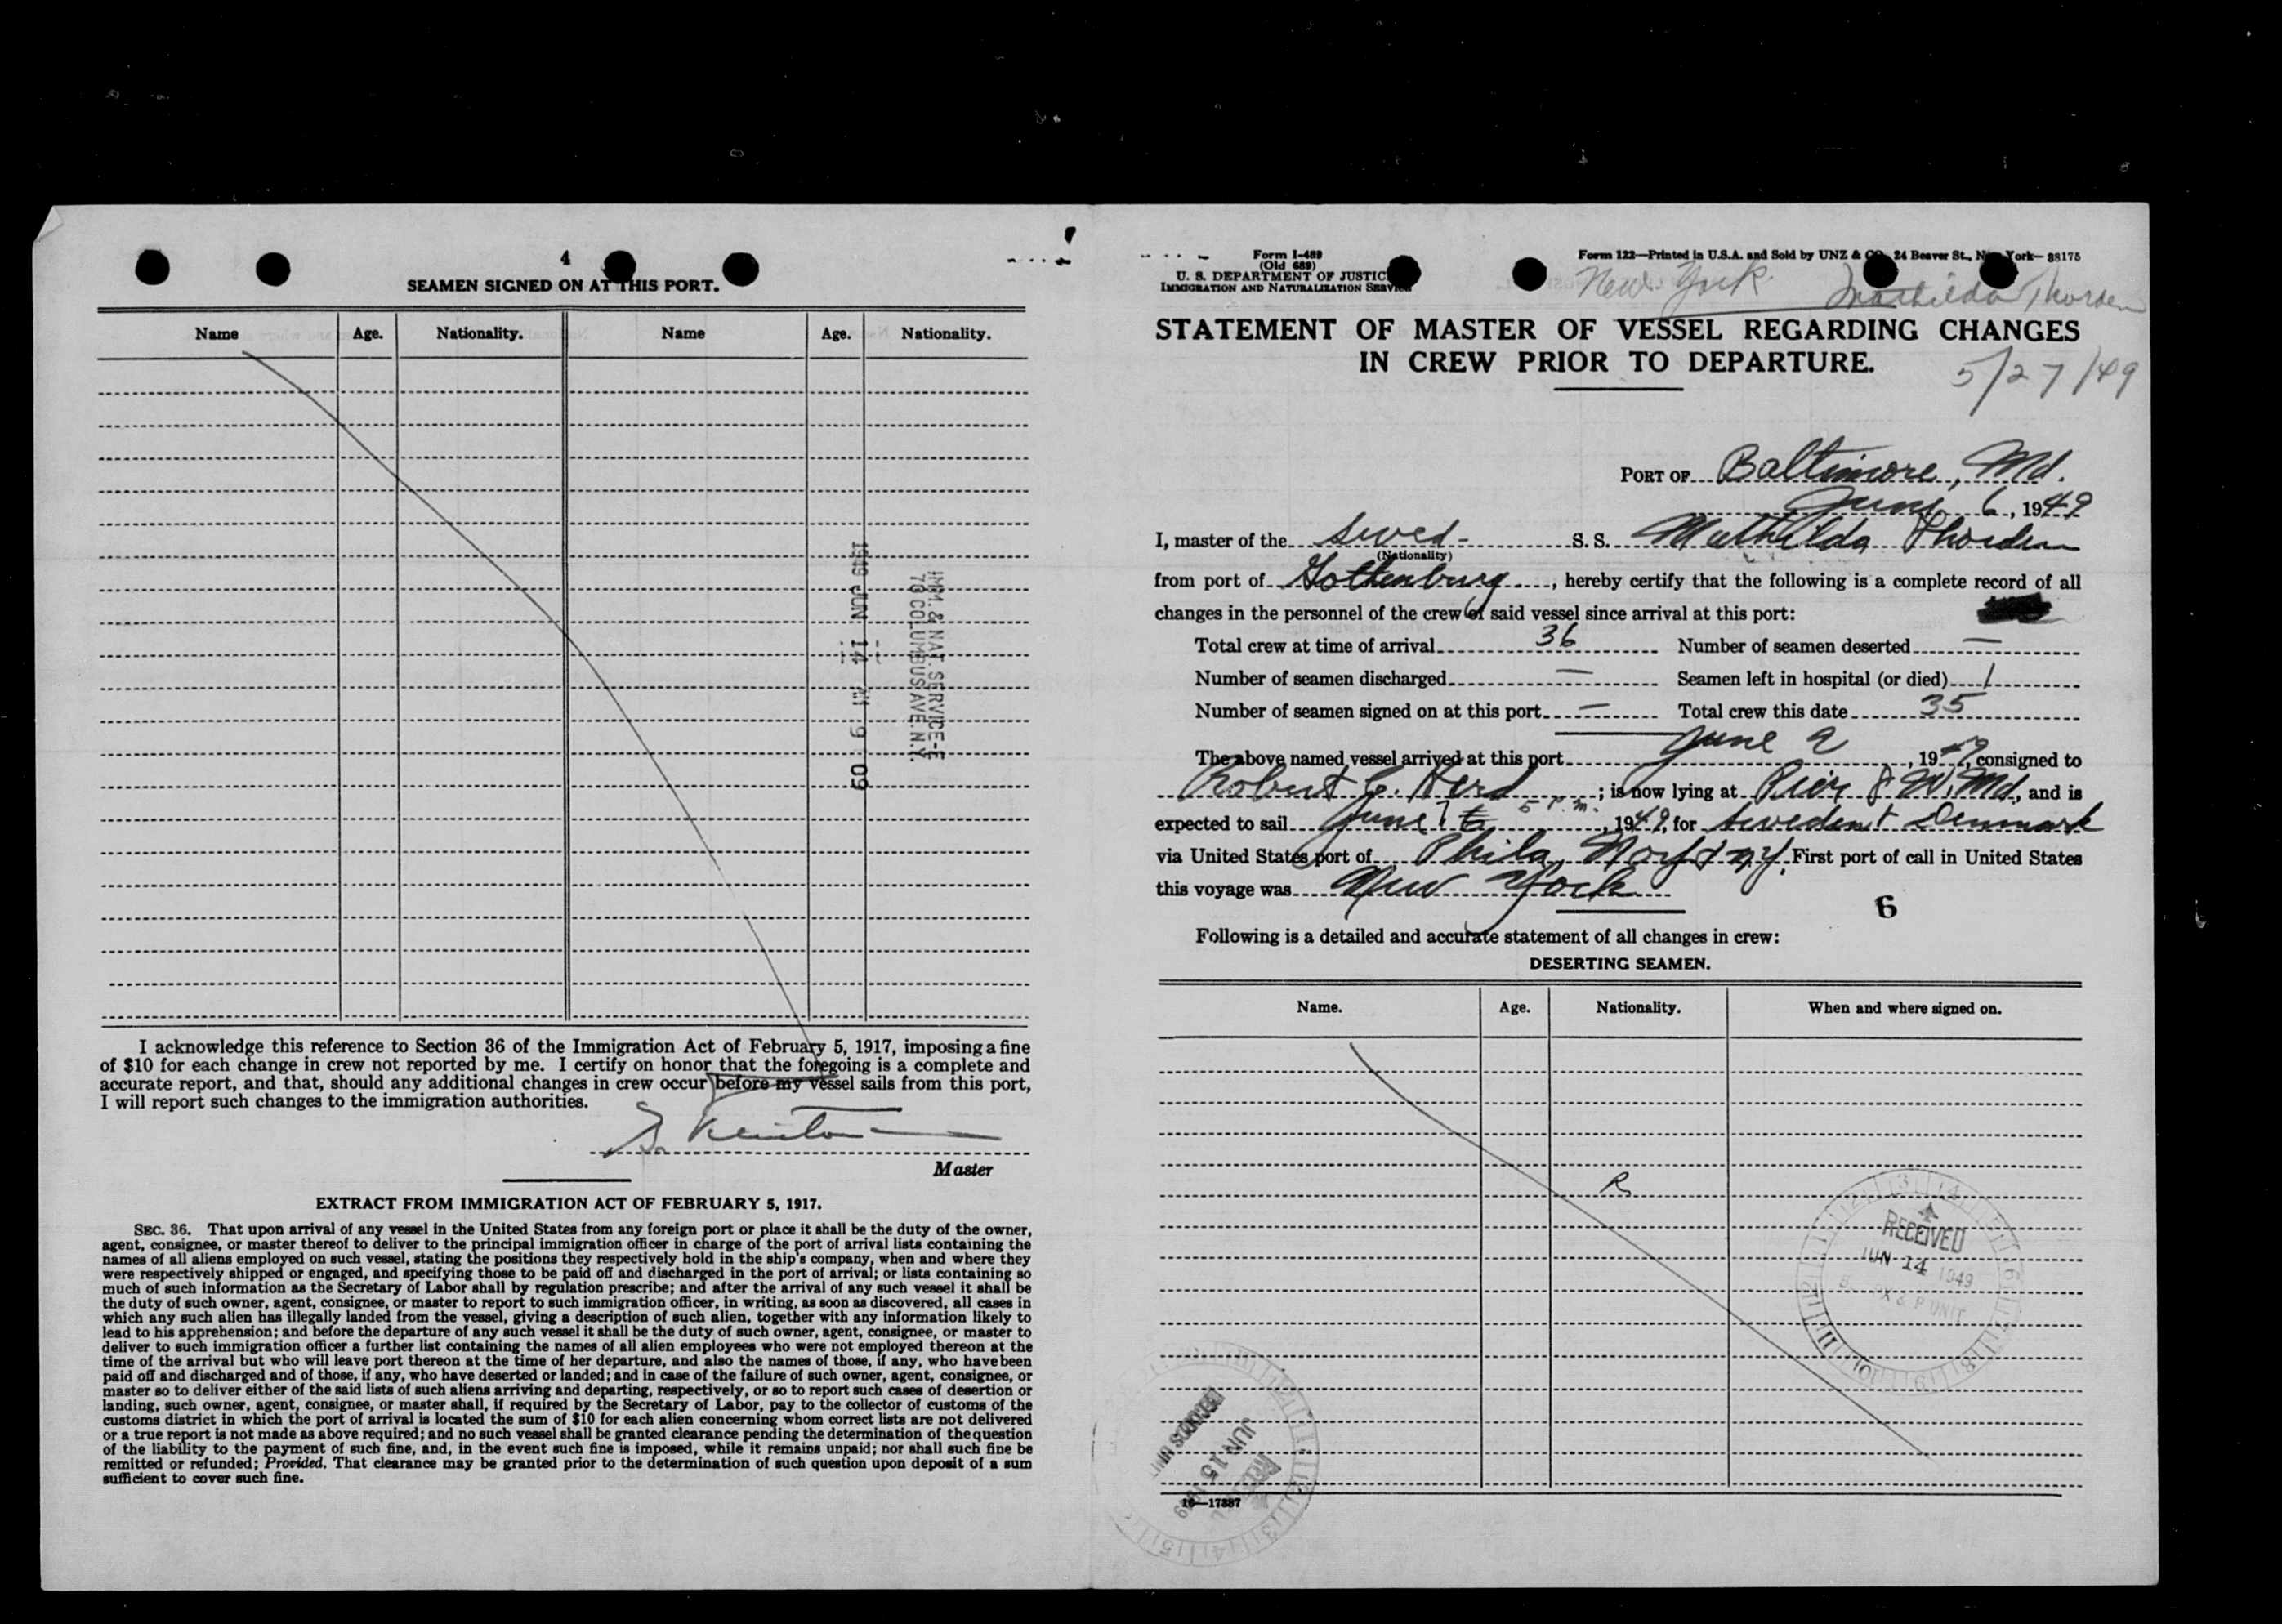 4
SEAMEN SIGNED ON AT THIS PORT.
Name Age. Nationality. Name Age. Nationality.
IMM. & NAT. SERVICE-E
70 COLUMBUS AVE. N.Y.
1949 JUN 14 9 09
I acknowledge this reference to Section 36 of the Immigration Act of February 5, 1917, imposing a fine
of $10 for each change in crew not reported by me. I certify on honor that the foregoing is a complete and
accurate report, and that, should any additional changes in crew occur before my vessel sails from this port,
I will report such changes to the immigration authorities.
Master
EXTRACT FROM IMMIGRATION ACT OF FEBRUARY 5, 1917.
SEC. 36. That upon arrival of any vessel in the United States from any foreign port or place it shall be the duty of the owner,
agent, consignee, or master thereof to deliver to the principal immigration officer in charge of the port of arrival lists containing the
names of all aliens employed on such vessel, stating the positions they respectively hold in the ship's company, when and where they
were respectively shipped or engaged, and specifying those to be paid off and discharged in the port of arrival; or lists containing so
much of such information as the Secretary of Labor shall by regulation prescribe; and after the arrival of any such vessel it shall be
the duty of such owner, agent, consignee, or master to report to such immigration officer, in writing, as soon as discovered, all cases in
which any such alien has illegally landed from the vessel, giving a description of such alien, together with any information likely to
lead to his apprehension; and before the departure of any such vessel it shall be the duty of such owner, agent, consignee, or master to
deliver to such immigration officer a further list containing the names of all alien employees who were not employed thereon at the
time of the arrival but who will leave port thereon at the time of her departure, and also the names of those, if any, who have been
paid off and discharged and of those, if any, who have deserted or landed; and in case of the failure of such owner, agent, consignee, or
master so to deliver either of the said lists of such aliens arriving and departing, respectively, or so to report such cases of desertion or
landing, such owner, agent, consignee, or master shall, if required by the Secretary of Labor, pay to the collector of customs of the
customs district in which the port of arrival is located the sum of $10 for each alien concerning whom correct lists are not delivered
or a true report is not made as above required; and no such vessel shall be granted clearance pending the determination of the question
of the liability to the payment of such fine, and, in the event such fine is imposed, while it remains unpaid; nor shall such fine be
remitted or refunded; Provided, That clearance may be granted prior to the determination of such question upon deposit of a sum
sufficient to cover such fine.
Form I-489
(Old 689)
U. S. DEPARTMENT OF JUSTIC
IMMIGRATION AND NATURALIZATION SERVICE
Form 122—Printed in U.S.A. and Sold by UNZ & CO. 24 Beaver St., New York—38175
New York Mathilda Thorden
STATEMENT OF MASTER OF VESSEL REGARDING CHANGES
IN CREW PRIOR TO DEPARTURE.
5/27/49
PORT OF Baltimore, Md.
June 6, 1949
I, master of the Swed- S. S. Mathilda Thorden
(Nationality)
from port of Gothenburg, hereby certify that the following is a complete record of all
changes in the personnel of the crew of said vessel since arrival at this port:
Total crew at time of arrival 36 Number of seamen deserted —
Number of seamen discharged — Seamen left in hospital (or died) 1
Number of seamen signed on at this port — Total crew this date 35
The above named vessel arrived at this port June 2, 1949, consigned to
Robert C. Herd; is now lying at Pier 8 W. Md, and is
expected to sail June 7 5 P.m., 1949, for Sweden + Denmark
via United States port of Phila, Norf + NY. First port of call in United States
this voyage was New York
6
Following is a detailed and accurate statement of all changes in crew:
DESERTING SEAMEN.
Name. Age. Nationality. When and where signed on.
R
RECEIVED
JUN 14 1949
P UNIT
JUN 15 1949
16—17887